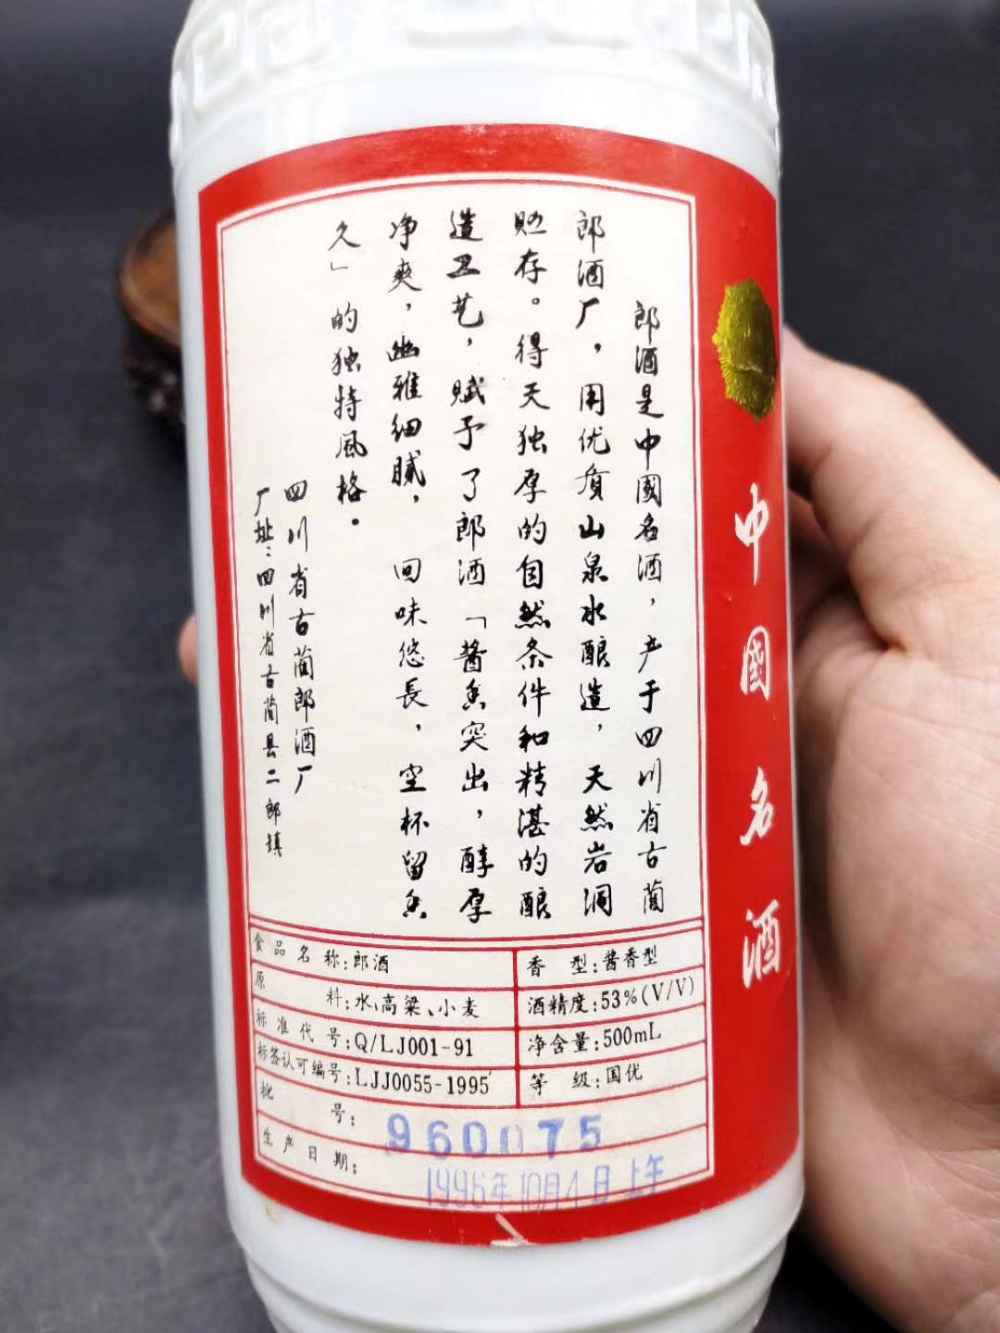 郎酒是中國名酒，产于四川省古蔺
郎酒厂，用优质山泉水酿造，天然岩洞
贮存。得天独厚的自然条件和精湛的酿
造工艺，赋予了郎酒「酱香突出，醇厚
净爽，幽雅细腻，回味悠長，空杯留香
久」的独特風格。
四川省古蔺郎酒厂
厂址：四川省古蔺县二郎镇
中國名酒
食品名称：郎酒
香型：酱香型
原料：水、高粱、小麦
酒精度：53%(V/V)
标准代号：Q/LJ001-91
净含量：500mL
标签认可编号：LJJ0055-1995
等级：国优
批号：960075
生产日期：1996年10月4日上午